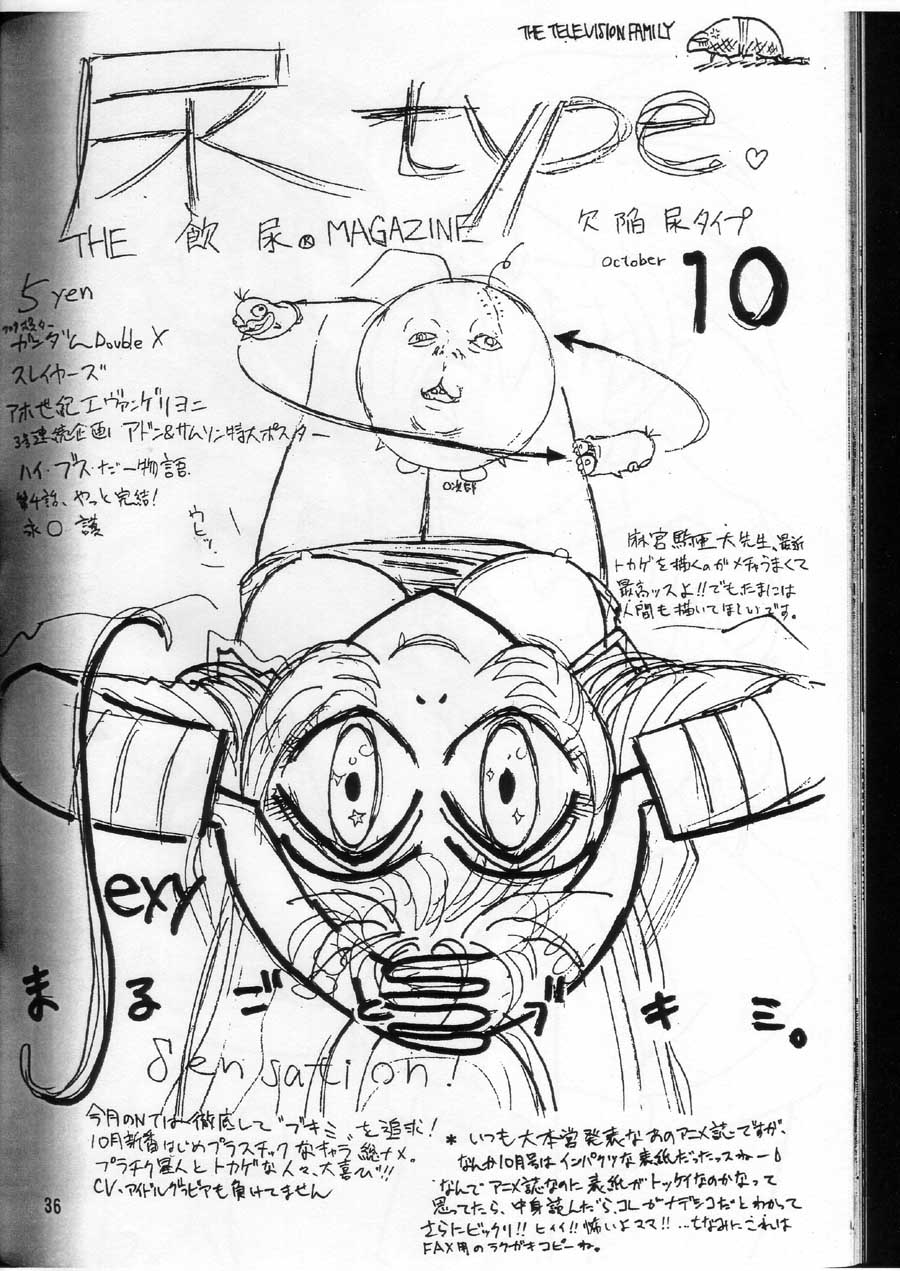 THE TELEVISION FAMILY
尿 type.♡
THE 飲尿 MAGAZINE
欠陥尿タイプ
October 10
5 yen
ガンダム Double X
スレイヤーズ
アホ世紀エヴァンゲリヨニ
3号連続企画 アドン&サムソン特大ポスター
ハイ・ブス・だー物語.
第4話、やっと完結!
永〇 護
ウヒッ
〇次郎
麻宮騎亜大先生、最近
トカゲを描くのがメチャうまくて
最高ッスよ!!でもたまには
人間も描いてほしいです。
Sexy
まるごとブキミ。
Sensation!
今月のNTでは徹底して"ブキミ"を追求!
10月新番はじめプラスチックなキャラ総ナメ。
プラチク星人とトカゲな人々、大喜び!!
CV.アイドルグラビアも負けてません
* いつも大本営発表なあのアニメ誌ですが、
なんか10月号はインパクツな表紙だったッスねー
なんでアニメ誌なのに表紙がトッケイなのかなって
思ってたら、中身読んだら、コレがナデシコだとわかって
さらにビックリ!! ヒィィ!! 怖いよママ!! …ちなみにこれは
FAX用のラクガキコピーね。
36